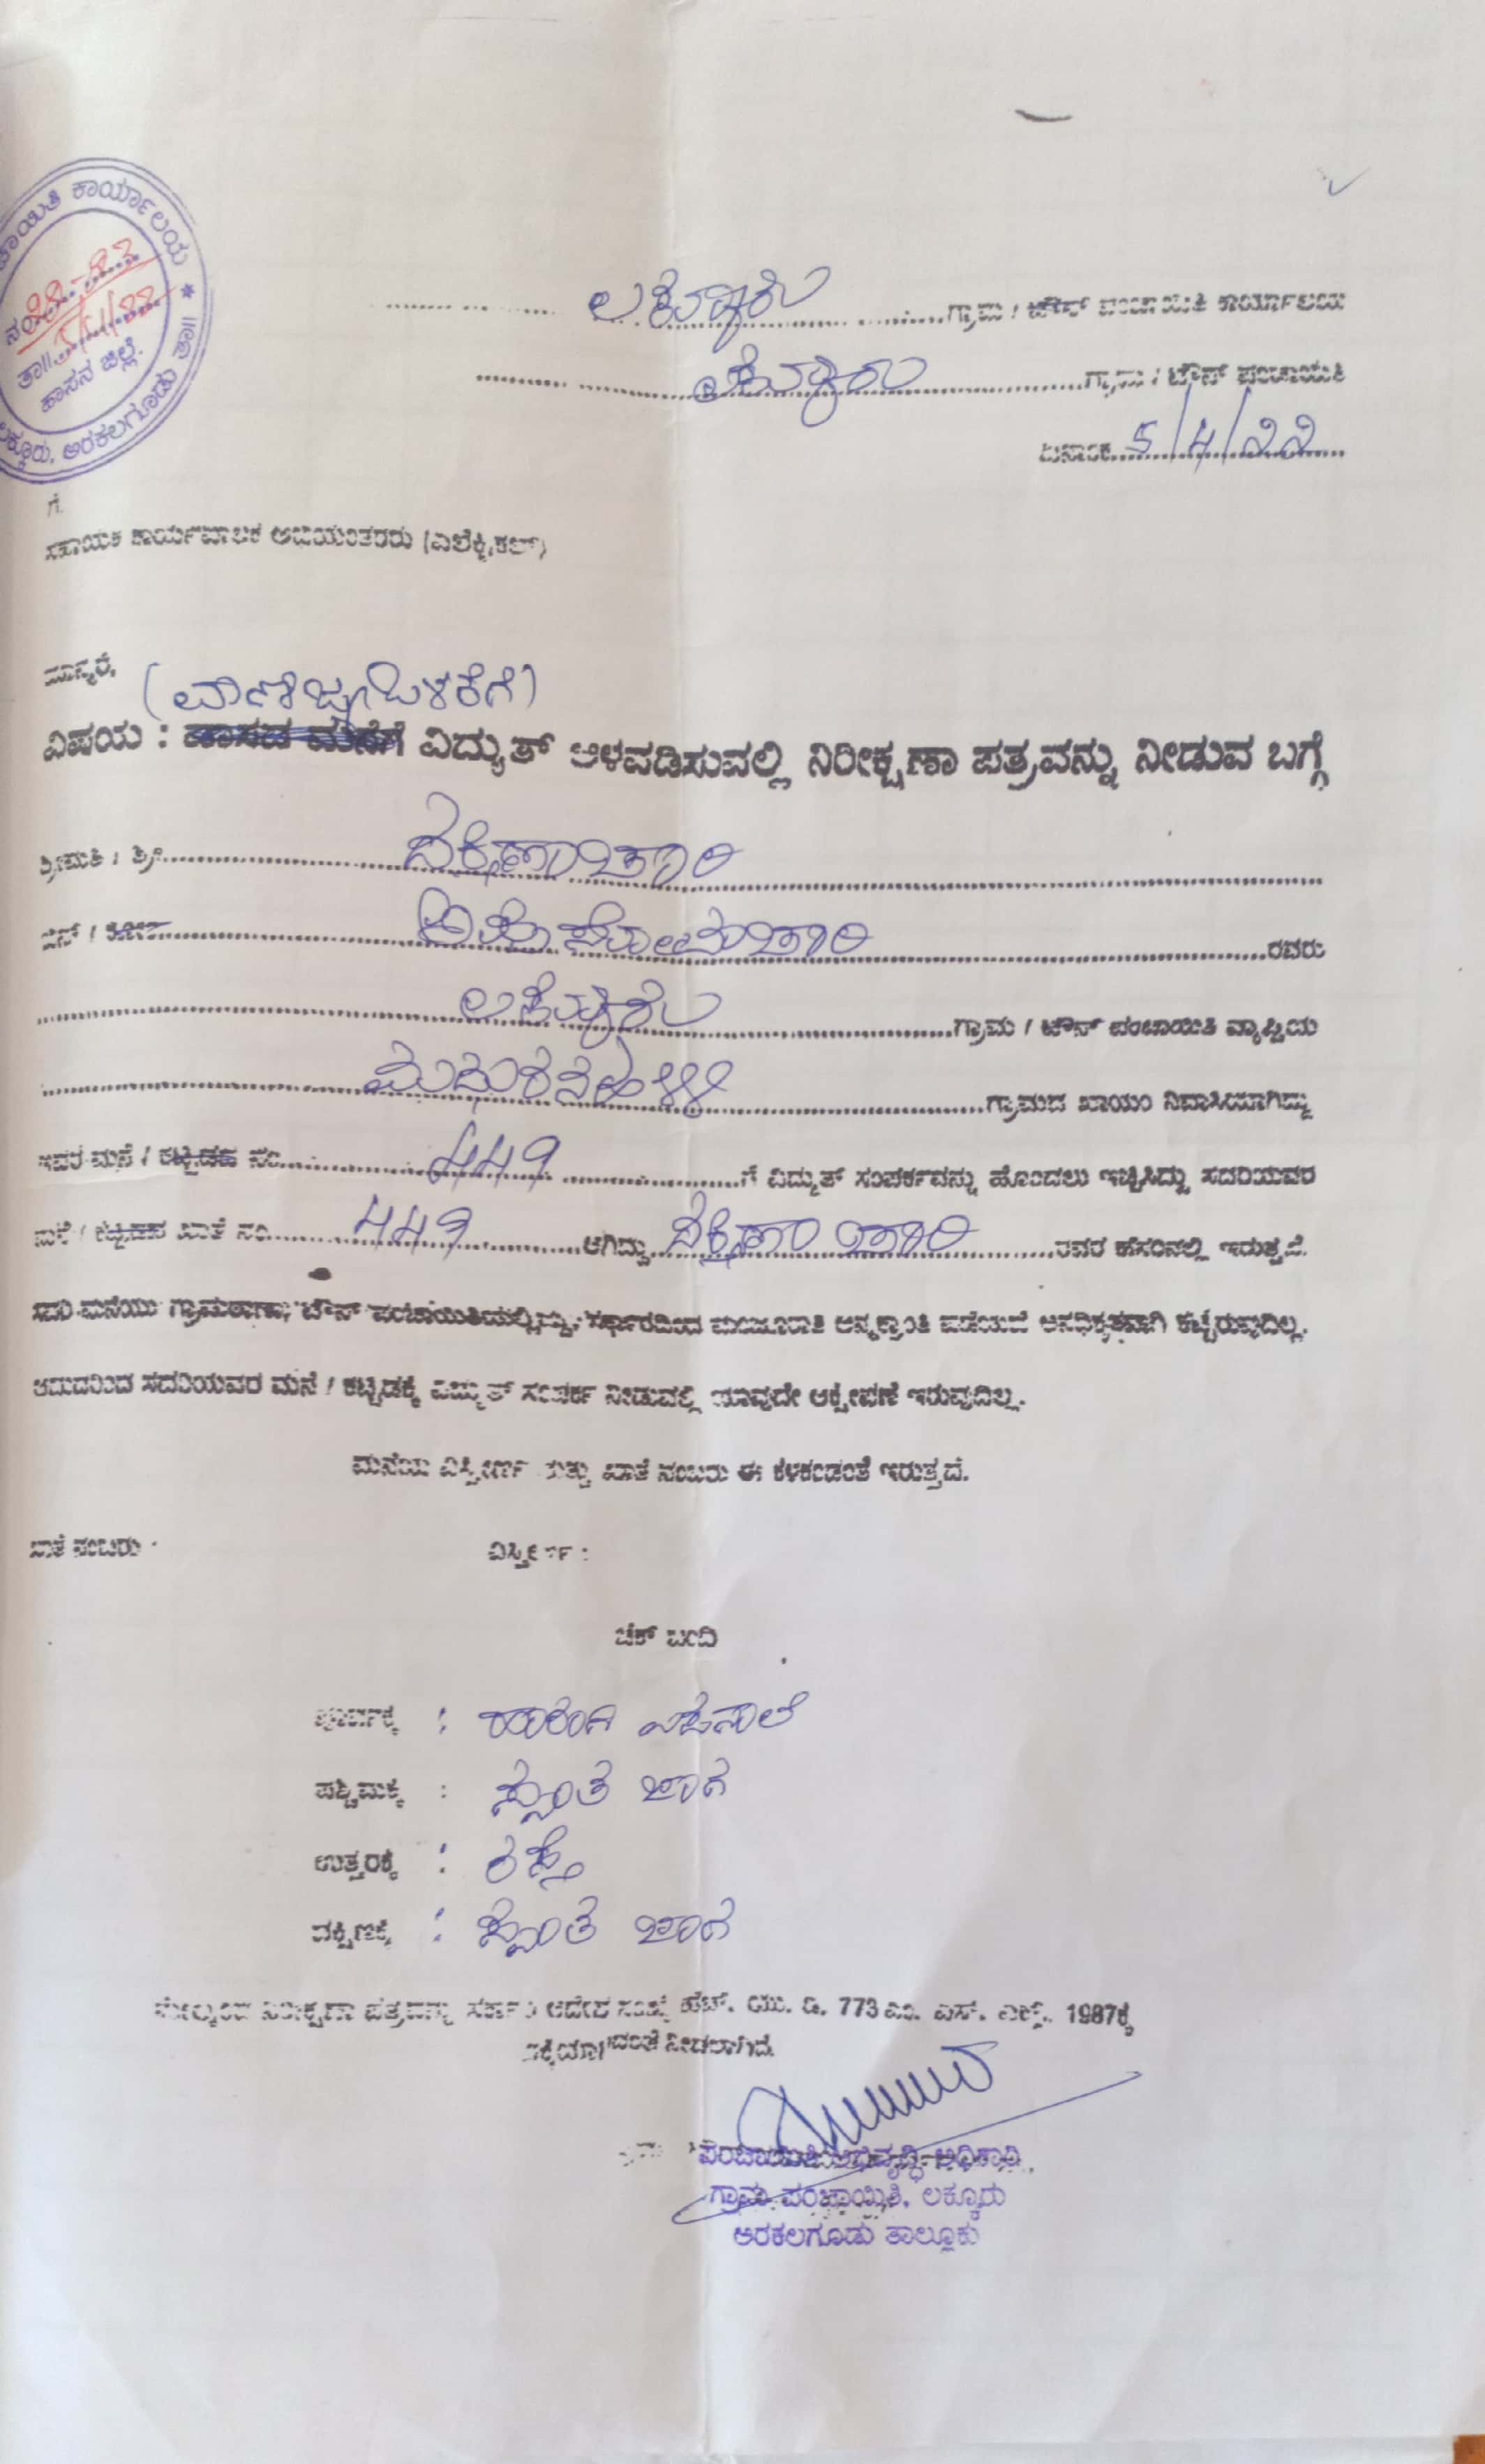 ಕಾರ್ಯಾಲಯ *
ತಾ||
ಹಾಸನ ಜಿಲ್ಲೆ.
ಲಕ್ಕೂರು, ಅರಕಲಗೂಡು ತಾ||
ಲಕ್ಕೂರು ಗ್ರಾಮ / ಟೌನ್ ಪಂಚಾಯಿತಿ ಕಾರ್ಯಾಲಯ
ಲಕ್ಕೂರು ಗ್ರಾಮ / ಟೌನ್ ಪಂಚಾಯಿತಿ
ದಿನಾಂಕ 5/4/೨೨
ಗೆ.
ಸಹಾಯಕ ಕಾರ್ಯನಿರ್ವಾಹಕ ಅಭಿಯಂತರರು (ಎಲೆಕ್ಟ್ರಿಕಲ್)
ಮಾನ್ಯರೆ,
(ವಾಣಿಜ್ಯ ಬಳಕೆಗೆ)
ವಿಷಯ : ವಾಸದ ಮನೆಗೆ ವಿದ್ಯುತ್ ಅಳವಡಿಸುವಲ್ಲಿ ನಿರೀಕ್ಷಣಾ ಪತ್ರವನ್ನು ನೀಡುವ ಬಗ್ಗೆ
ಶ್ರೀಮತಿ / ಶ್ರೀ
ಬಿನ್ / ಕೋಂ ರವರು
ಲಕ್ಕೂರು ಗ್ರಾಮ / ಟೌನ್ ಪಂಚಾಯಿತಿ ವ್ಯಾಪ್ತಿಯ
ಮುದುಗನಹಳ್ಳಿ ಗ್ರಾಮದ ಖಾಯಂ ನಿವಾಸಿಯಾಗಿದ್ದು
ಇವರ ಮನೆ / ಕಟ್ಟಡದ ನಂ 449 ಗೆ ವಿದ್ಯುತ್ ಸಂಪರ್ಕವನ್ನು ಹೊಂದಲು ಇಚ್ಛಿಸಿದ್ದು ಸದರಿಯವರ
ಮನೆ / ಕಟ್ಟಡದ ಖಾತೆ ನಂ 449 ಆಗಿದ್ದು ರವರ ಹೆಸರಿನಲ್ಲಿ ಇರುತ್ತದೆ.
ಸದರಿ ಮನೆಯು ಗ್ರಾಮಠಾಣಾ, ಟೌನ್ ಪಂಚಾಯಿತಿಯಲ್ಲಿದ್ದು, ಸರ್ಕಾರದಿಂದ ಮಂಜೂರಾತಿ ಅನ್ಯಕ್ರಾಂತಿ ಪಡೆಯದೆ ಅನಧಿಕೃತವಾಗಿ ಕಟ್ಟಿರುವುದಿಲ್ಲ.
ಆದುದರಿಂದ ಸದರಿಯವರ ಮನೆ / ಕಟ್ಟಡಕ್ಕೆ ವಿದ್ಯುತ್ ಸಂಪರ್ಕ ನೀಡುವಲ್ಲಿ ಯಾವುದೇ ಆಕ್ಷೇಪಣೆ ಇರುವುದಿಲ್ಲ.
ಮನೆಯ ವಿಸ್ತೀರ್ಣ ಮತ್ತು ಖಾತೆ ನಂಬರು ಈ ಕೆಳಕಂಡಂತೆ ಇರುತ್ತದೆ.
ಖಾತೆ ನಂಬರು : ವಿಸ್ತೀರ್ಣ :
ಚೆಕ್ ಬಂದಿ
ಪೂರ್ವಕ್ಕೆ : ಹಾರಂಗಿ
ಪಶ್ಚಿಮಕ್ಕೆ : ಸ್ವಂತ ಜಾಗ
ಉತ್ತರಕ್ಕೆ : ರಸ್ತೆ
ದಕ್ಷಿಣಕ್ಕೆ : ಸ್ವಂತ ಜಾಗ
ಮೇಲ್ಕಂಡ ನಿರೀಕ್ಷಣಾ ಪತ್ರವನ್ನು ಸರ್ಕಾರಿ ಆದೇಶ ಸಂಖ್ಯೆ ಹೆಚ್. ಯು. ಡಿ. 773 ಎಂ. ಎನ್. ಎಕ್ಸ್. 1987ಕ್ಕೆ
ನೀಡಲಾಗಿದೆ.
ಪಂಚಾಯಿತಿ ಅಭಿವೃದ್ಧಿ ಅಧಿಕಾರಿ
ಗ್ರಾಮ ಪಂಚಾಯ್ತಿತಿ, ಲಕ್ಕೂರು
ಅರಕಲಗೂಡು ತಾಲ್ಲೂಕು